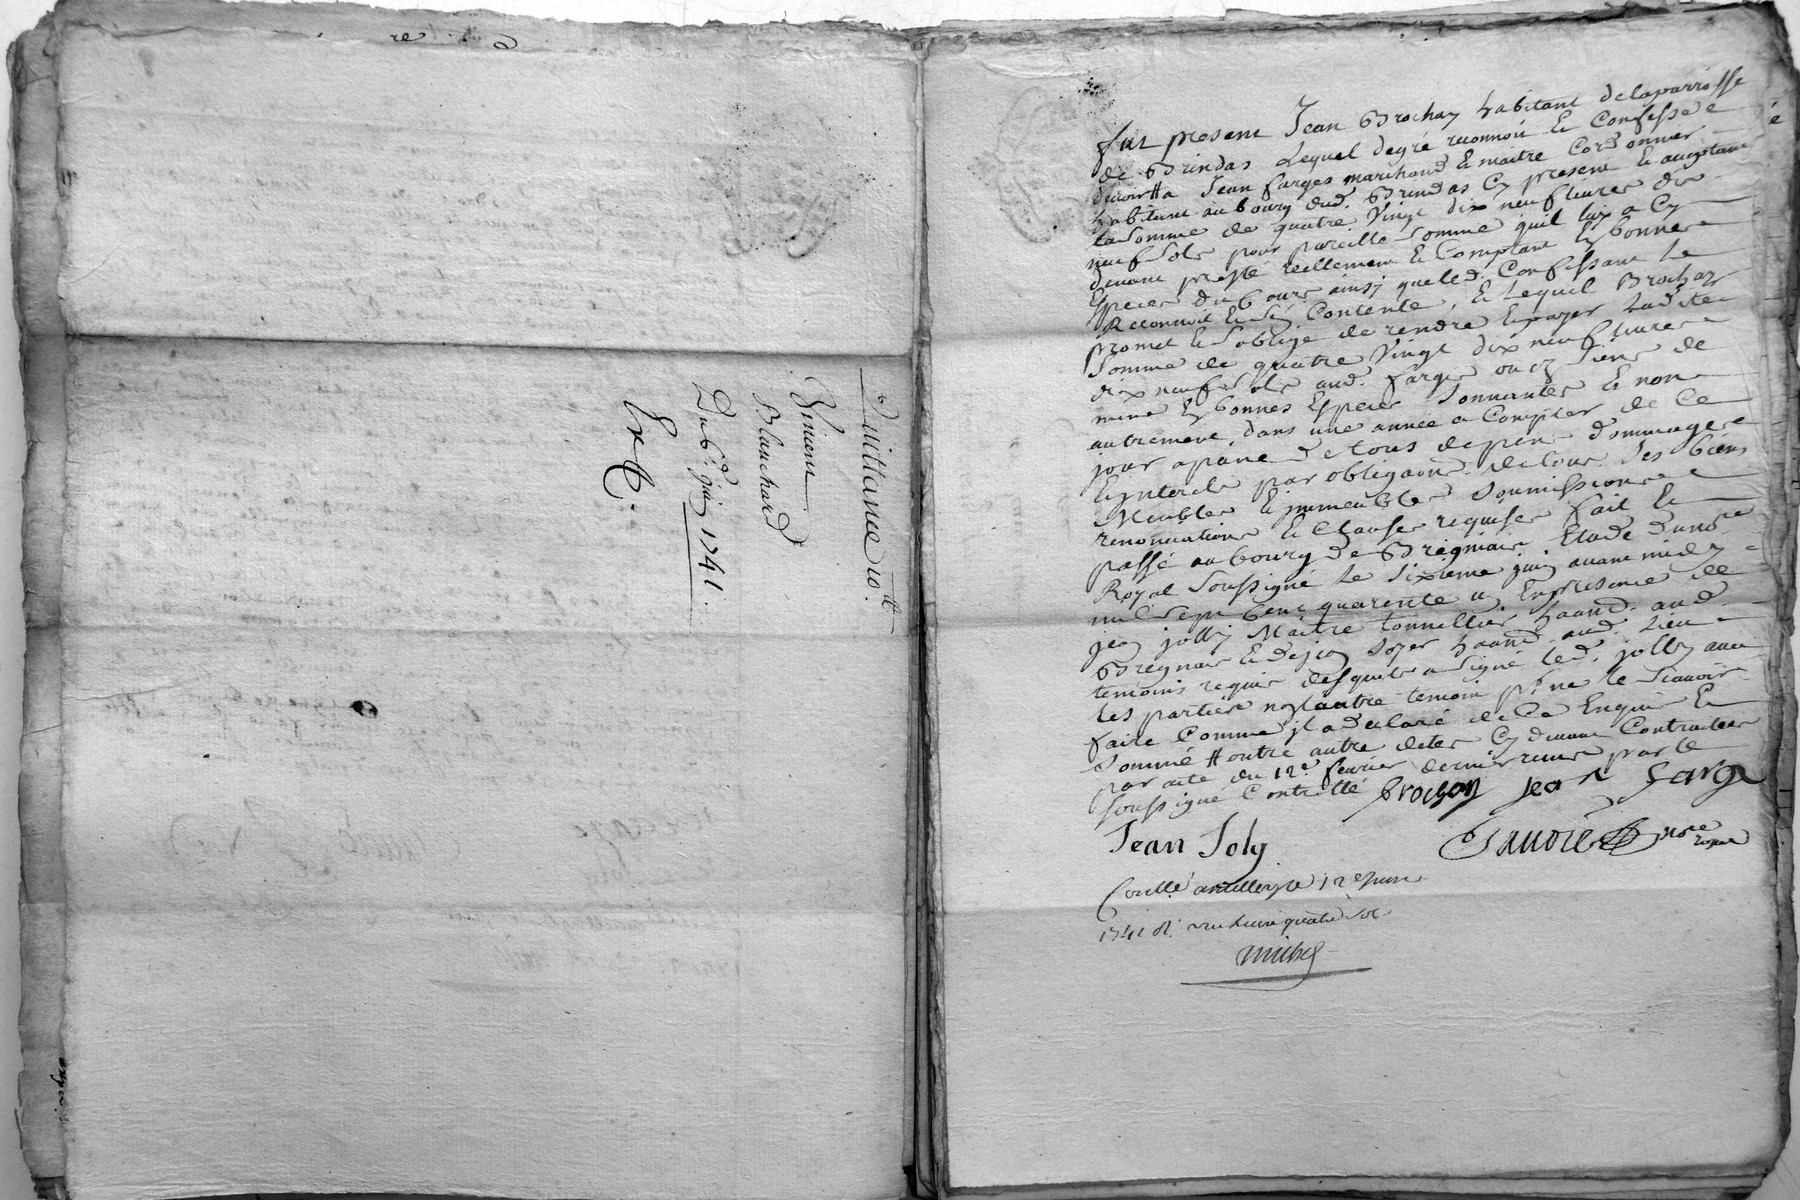 Quittance 10.tt
Vincent
Blanchard
Du 6.e juin 1741.
Fut present Jean Brochay habitant de la parroisse
de Brindas Lequel de gré reconnoit Et Confesse
devoir # a Jean farges marchand Et maitre Cordonnier
habitant au bourg dud. Brindas Cy present Et acceptant
La Somme de quatre Vingt dix neuf livres dix
neuf Sols pour pareille Somme quil luy a Cy
devant presté reellement Et Comptant En bonnes
Especes du Cours ainsy que led. Confessant Le
Reconnoit Et Sen Contente, Et Lequel Brochay
promet Et Soblige de rendre Et payer Ladite
Somme de quatre Vingt dix neuf livres
dix neuf Sols aud. farges ou es Siens de
meme En bonnes Especes Sonnantes Et non
autrement, dans une année a Compter de Ce
jour apeine de tous depens dommages
Et interets par obligaons. de tous Ses biens
Meubles Et immeubles Soumissions
renonciations Et Clauses requises fait Et
passé au bourg de Bregnais Etude du no.re
Royal Soussigné Le Sixieme juin avant midy
mil Sept Cent quarente un En presence de
jean jolly Maitre tonnellier habitt. aud.
Bregnais Et de jean Soyer habitt. aud. Lieu
temoins requis desquels a Signé led. jolly avec
Les parties non Lautre temoin p.r ne le Scavoir
faire Comme il a declaré de Ce Enquis Et
Sommé # outre autre dete Cy devant Contractée
par acte du 12.e fevrier dernier receu par le
Soussigné Controllé brochay jean farge
Jean Joly
no.re royal
Con.llé 12e juin
1741 R. une livre quatre sols
michel